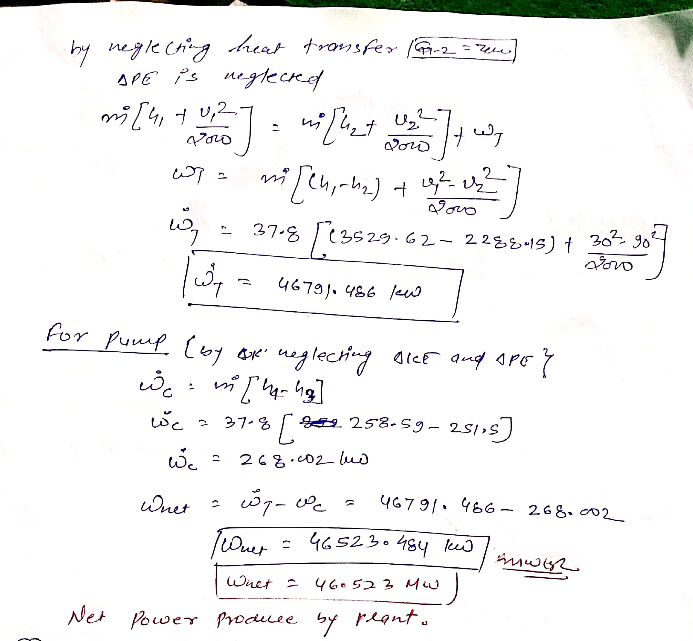 by neglecting heat transfer [Q1-2 = zero]
ΔPE is neglected
ṁ[h1 + v1²/2000] = ṁ[h2 + v2²/2000] + ẇT
ẇT = ṁ[(h1-h2) + v1²-v2²/2000]
ẇT = 37.8 [(3529.62 - 2288.15) + 30²-90²/2000]
ẇT = 46791.486 kW
For Pump (by neglecting ΔKE and ΔPE}
ẇc = ṁ[h4-h3]
ẇc = 37.8 [258.59 - 251.5]
ẇc = 268.002 kW
Wnet = ẇT - ẇc = 46791.486 - 268.002
Wnet = 46523.484 kW Answer
Wnet = 46.523 MW
Net Power Produce by plant.